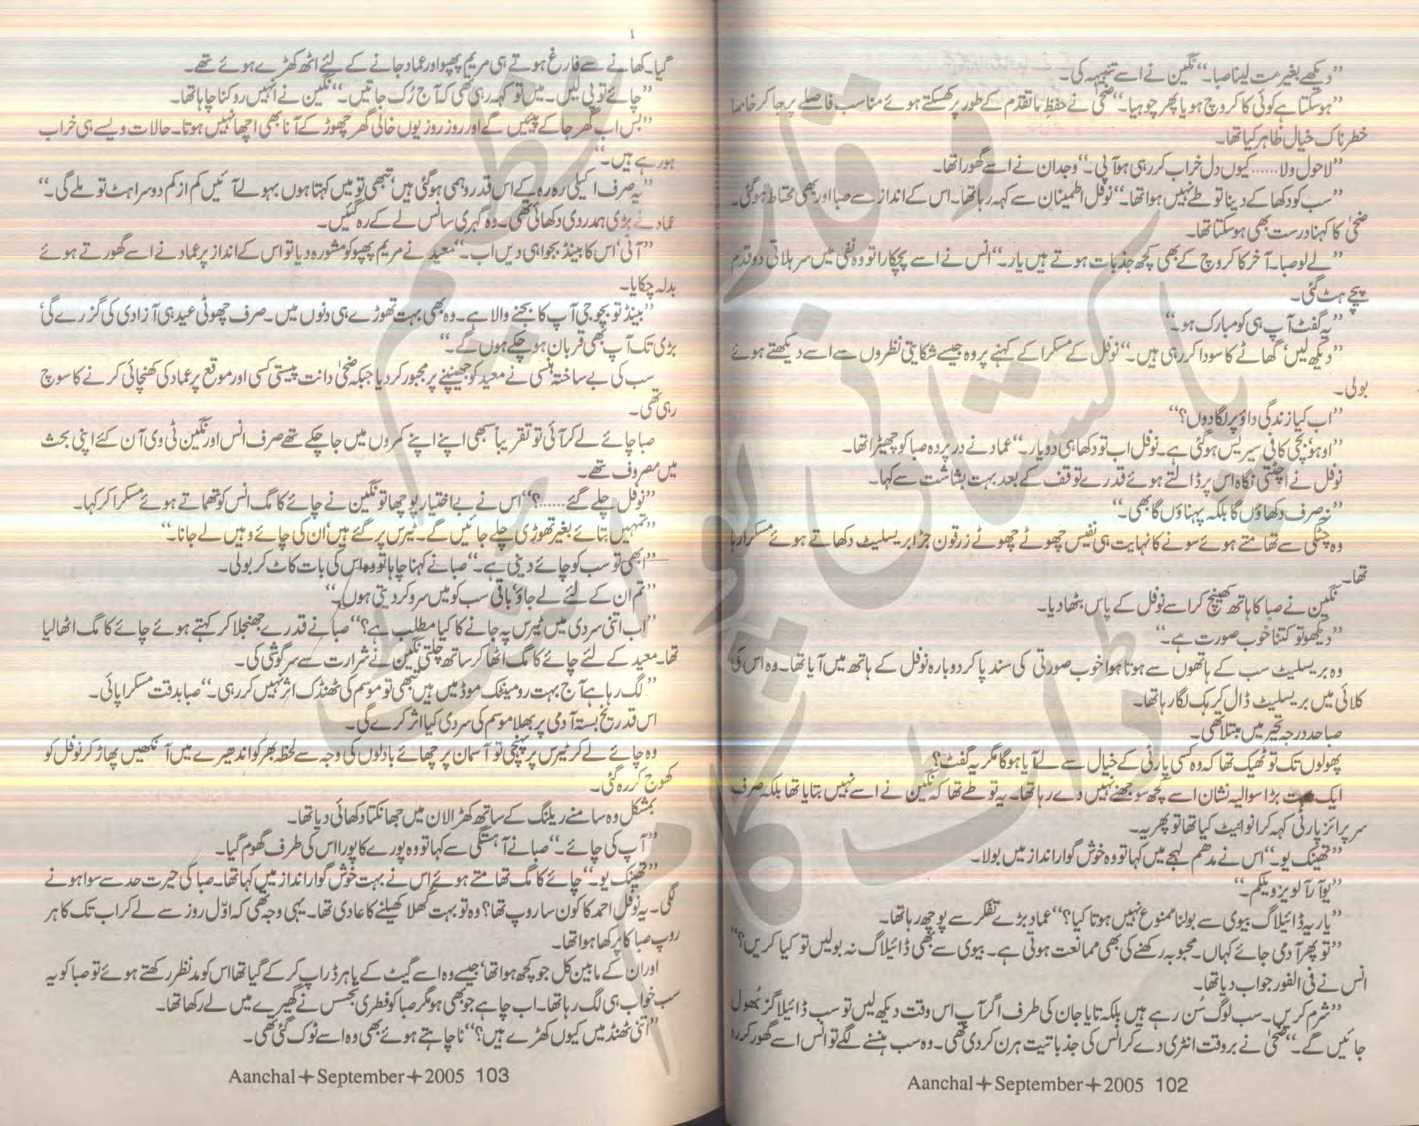 ”دیکھے بغیر مت لینا صبا۔“ نگین نے اسے تنبیہہ کی۔
”ہو سکتا ہے کوئی کاکروچ ہو یا پھر چوہیا۔“ ضحیٰ نے حفظِ ماتقدم کے طور پر کھسکتے ہوئے مناسب فاصلے پر جا کر خاصا
خطرناک خیال ظاہر کیا تھا۔
”لاحول ولا...... کیوں دل خراب کر رہی ہو آپی۔“ وجدان نے اسے گھورا تھا۔
”سب کو دکھا کے دینا تو طے نہیں ہوا تھا۔“ نوفل اطمینان سے کہہ رہا تھا۔ اس کے انداز سے صبا اور بھی محتاط ہو گئی۔
ضحیٰ کا کہنا درست بھی ہو سکتا تھا۔
”لے لو صبا۔ آخر کاکروچ کے بھی کچھ جذبات ہوتے ہیں یار۔“ انس نے اسے پچکارا تو وہ نفی میں سر ہلاتی دو قدم
پیچھے ہٹ گئی۔
”یہ گفٹ آپ ہی کو مبارک ہو۔“
”دیکھ لیں‘ گھاٹے کا سودا کر رہی ہیں۔“ نوفل کے مسکرا کے کہنے پر وہ جیسے شکایتی نظروں سے اسے دیکھتے ہوئے
بولی۔
”اب کیا زندگی داؤ پر لگا دوں؟“
”اوہو‘ بچی کافی سیریس ہو گئی ہے۔ نوفل اب تو دکھا ہی دو یار۔“ عماد نے درپردہ صبا کو چھیڑا تھا۔
نوفل نے اچٹتی نگاہ اس پر ڈالتے ہوئے قدرے توقف کے بعد بہت بشاشت سے کہا۔
”نہ صرف دکھاؤں گا بلکہ پہناؤں گا بھی۔“
وہ چٹکی سے تھامتے ہوئے سونے کا نہایت ہی نفیس چھوٹے چھوٹے زرقون جڑا بریسلیٹ دکھاتے ہوئے مسکرا رہا
تھا۔
نگین نے صبا کا ہاتھ کھینچ کر اسے نوفل کے پاس بٹھا دیا۔
”دیکھو تو کتنا خوب صورت ہے۔“
وہ بریسلیٹ سب کے ہاتھوں سے ہوتا ہوا خوب صورتی کی سند پا کر دوبارہ نوفل کے ہاتھ میں آیا تھا۔ وہ اس کی
کلائی میں بریسلیٹ ڈال کر ہک لگا رہا تھا۔
صبا حد درجہ تحیر میں مبتلا تھی۔
پھولوں تک تو ٹھیک تھا کہ وہ کسی پارٹی کے خیال سے لے آیا ہوگا مگر یہ گفٹ؟
ایک بہت بڑا سوالیہ نشان اسے کچھ سوجھنے نہیں دے رہا تھا۔ یہ تو طے تھا کہ نگین نے اسے نہیں بتایا تھا بلکہ صرف
سرپرائز پارٹی کہہ کر انوائیٹ کیا تھا تو پھر یہ۔
”تھینک یو۔“ اس نے مدھم لہجے میں کہا تو وہ خوش گوار انداز میں بولا۔
”یو آر آلویز ویلکم۔“
”یار یہ ڈائیلاگ بیوی سے بولنا ممنوع نہیں ہوتا کیا؟“ عماد بڑے تفکر سے پوچھ رہا تھا۔
”تو پھر آدمی جائے کہاں۔ محبوبہ رکھنے کی بھی ممانعت ہوتی ہے۔ بیوی سے بھی ڈائیلاگ نہ بولیں تو کیا کریں؟“
انس نے فی الفور جواب دیا تھا۔
”شرم کریں۔ سب لوگ سُن رہے ہیں بلکہ تایا جان کی طرف اگر آپ اس وقت دیکھ لیں تو سب ڈائیلاگز بھول
جائیں گے۔“ ضحیٰ نے بروقت انٹری دے کر انس کی جذباتیت ہرن کر دی تھی۔ وہ سب ہنسنے لگے تو انس اسے گھور کر رہ
Aanchal+September+2005 102
گیا۔ کھانے سے فارغ ہوتے ہی مریم پھپو اور عماد جانے کے لئے اٹھ کھڑے ہوئے تھے۔
”چائے تو پی لیں۔ میں تو کہہ رہی تھی کہ آج رُک جاتیں۔“ نگین نے انہیں روکنا چاہا تھا۔
”بس اب گھر جا کے پئیں گے اور روز روز یوں خالی گھر چھوڑ کے آنا بھی اچھا نہیں ہوتا۔ حالات ویسے ہی خراب
ہو رہے ہیں۔“
”یہ صرف اکیلی رہ رہ کے اس قدر وہمی ہو گئی ہیں‘ تبھی تو میں کہتا ہوں بہو لے آئیں کم از کم دوسراہٹ تو ملے گی۔“
عماد نے بڑی ہمدردی دکھائی تھی۔ وہ گہری سانس لے کے رہ گئیں۔
”آنی‘ اس کا بینڈ بجوا ہی دیں اب۔“ معید نے مریم پھپو کو مشورہ دیا تو اس کے انداز پر عماد نے اسے گھورتے ہوئے
بدلہ چکایا۔
”بینڈ تو بچو جی آپ کا بجنے والا ہے۔ وہ بھی بہت تھوڑے ہی دنوں میں۔ صرف چھوٹی عید ہی آزادی کی گزرے گی‘
بڑی تک آپ بھی قربان ہو چکے ہوں گے۔“
سب کی بے ساختہ ہنسی نے معید کو جھینپنے پر مجبور کر دیا جبکہ ضحیٰ دانت پیستی کسی اور موقع پر عماد کی کھنچائی کرنے کا سوچ
رہی تھی۔
صبا چائے لے کر آئی تو تقریباً سبھی اپنے اپنے کمروں میں جا چکے تھے صرف انس اور نگین ٹی وی آن کئے اپنی بحث
میں مصروف تھے۔
”نوفل چلے گئے......؟“ اس نے بے اختیار پوچھا تو نگین نے چائے کا مگ انس کو تھماتے ہوئے مسکرا کر کہا۔
”تمہیں بتائے بغیر تھوڑی چلے جائیں گے۔ ٹیرس پر گئے ہیں‘ ان کی چائے وہیں لے جانا۔“
”ابھی تو سب کو چائے دینی ہے۔“ صبا نے کہنا چاہا تو وہ اس کی بات کاٹ کر بولی۔
”تم ان کے لئے لے جاؤ‘ باقی سب کو میں سرو کر دیتی ہوں۔“
”اب اتنی سردی میں ٹیرس پہ جانے کا کیا مطلب ہے؟“ صبا نے قدرے جھنجلا کر کہتے ہوئے چائے کا مگ اٹھا لیا
تھا۔ معید کے لئے چائے کا مگ اٹھا کر ساتھ چلتی نگین نے شرارت سے سرگوشی کی۔
”لگ رہا ہے آج بہت رومینٹک موڈ میں ہیں تبھی تو موسم کی ٹھنڈک اثر نہیں کر رہی۔“ صبا بدقت مسکرا پائی۔
اس قدر یخ بستہ آدمی پر بھلا موسم کی سردی کیا اثر کرے گی۔
وہ چائے لے کر ٹیرس پر پہنچی تو آسمان پر چھائے بادلوں کی وجہ سے لحظہ بھر کو اندھیرے میں آنکھیں پھاڑ کر نوفل کو
کھوج کر رہ گئی۔
بمشکل وہ سامنے ریلنگ کے ساتھ کھڑا لان میں جھانکتا دکھائی دیا تھا۔
”آپ کی چائے۔“ صبا نے آہستگی سے کہا تو وہ پورے کا پورا اس کی طرف گھوم گیا۔
”تھینک یو۔“ چائے کا مگ تھامتے ہوئے اس نے بہت خوش گوار انداز میں کہا تھا۔ صبا کی حیرت حد سے سوا ہونے
لگی۔ یہ نوفل احمد کا کون سا روپ تھا؟ وہ تو بہت کھلا کھیلنے کا عادی تھا۔ یہی وجہ تھی کہ اوّل روز سے لے کر اب تک کا ہر
روپ صبا کا پرکھا ہوا تھا۔
اور ان کے مابین کل جو کچھ ہوا تھا‘ جیسے وہ اسے گیٹ کے باہر ڈراپ کر کے گیا تھا اس کو مدنظر رکھتے ہوئے تو صبا کو یہ
سب خواب ہی لگ رہا تھا۔ اب چاہے جو بھی ہو مگر صبا کو فطری تجسس نے گھیرے میں لے رکھا تھا۔
”اتنی ٹھنڈ میں کیوں کھڑے ہیں؟“ نا چاہتے ہوئے بھی وہ اسے ٹوک گئی تھی۔
Aanchal+September+2005 103
پاکستانی پوائنٹ ڈاٹ کام